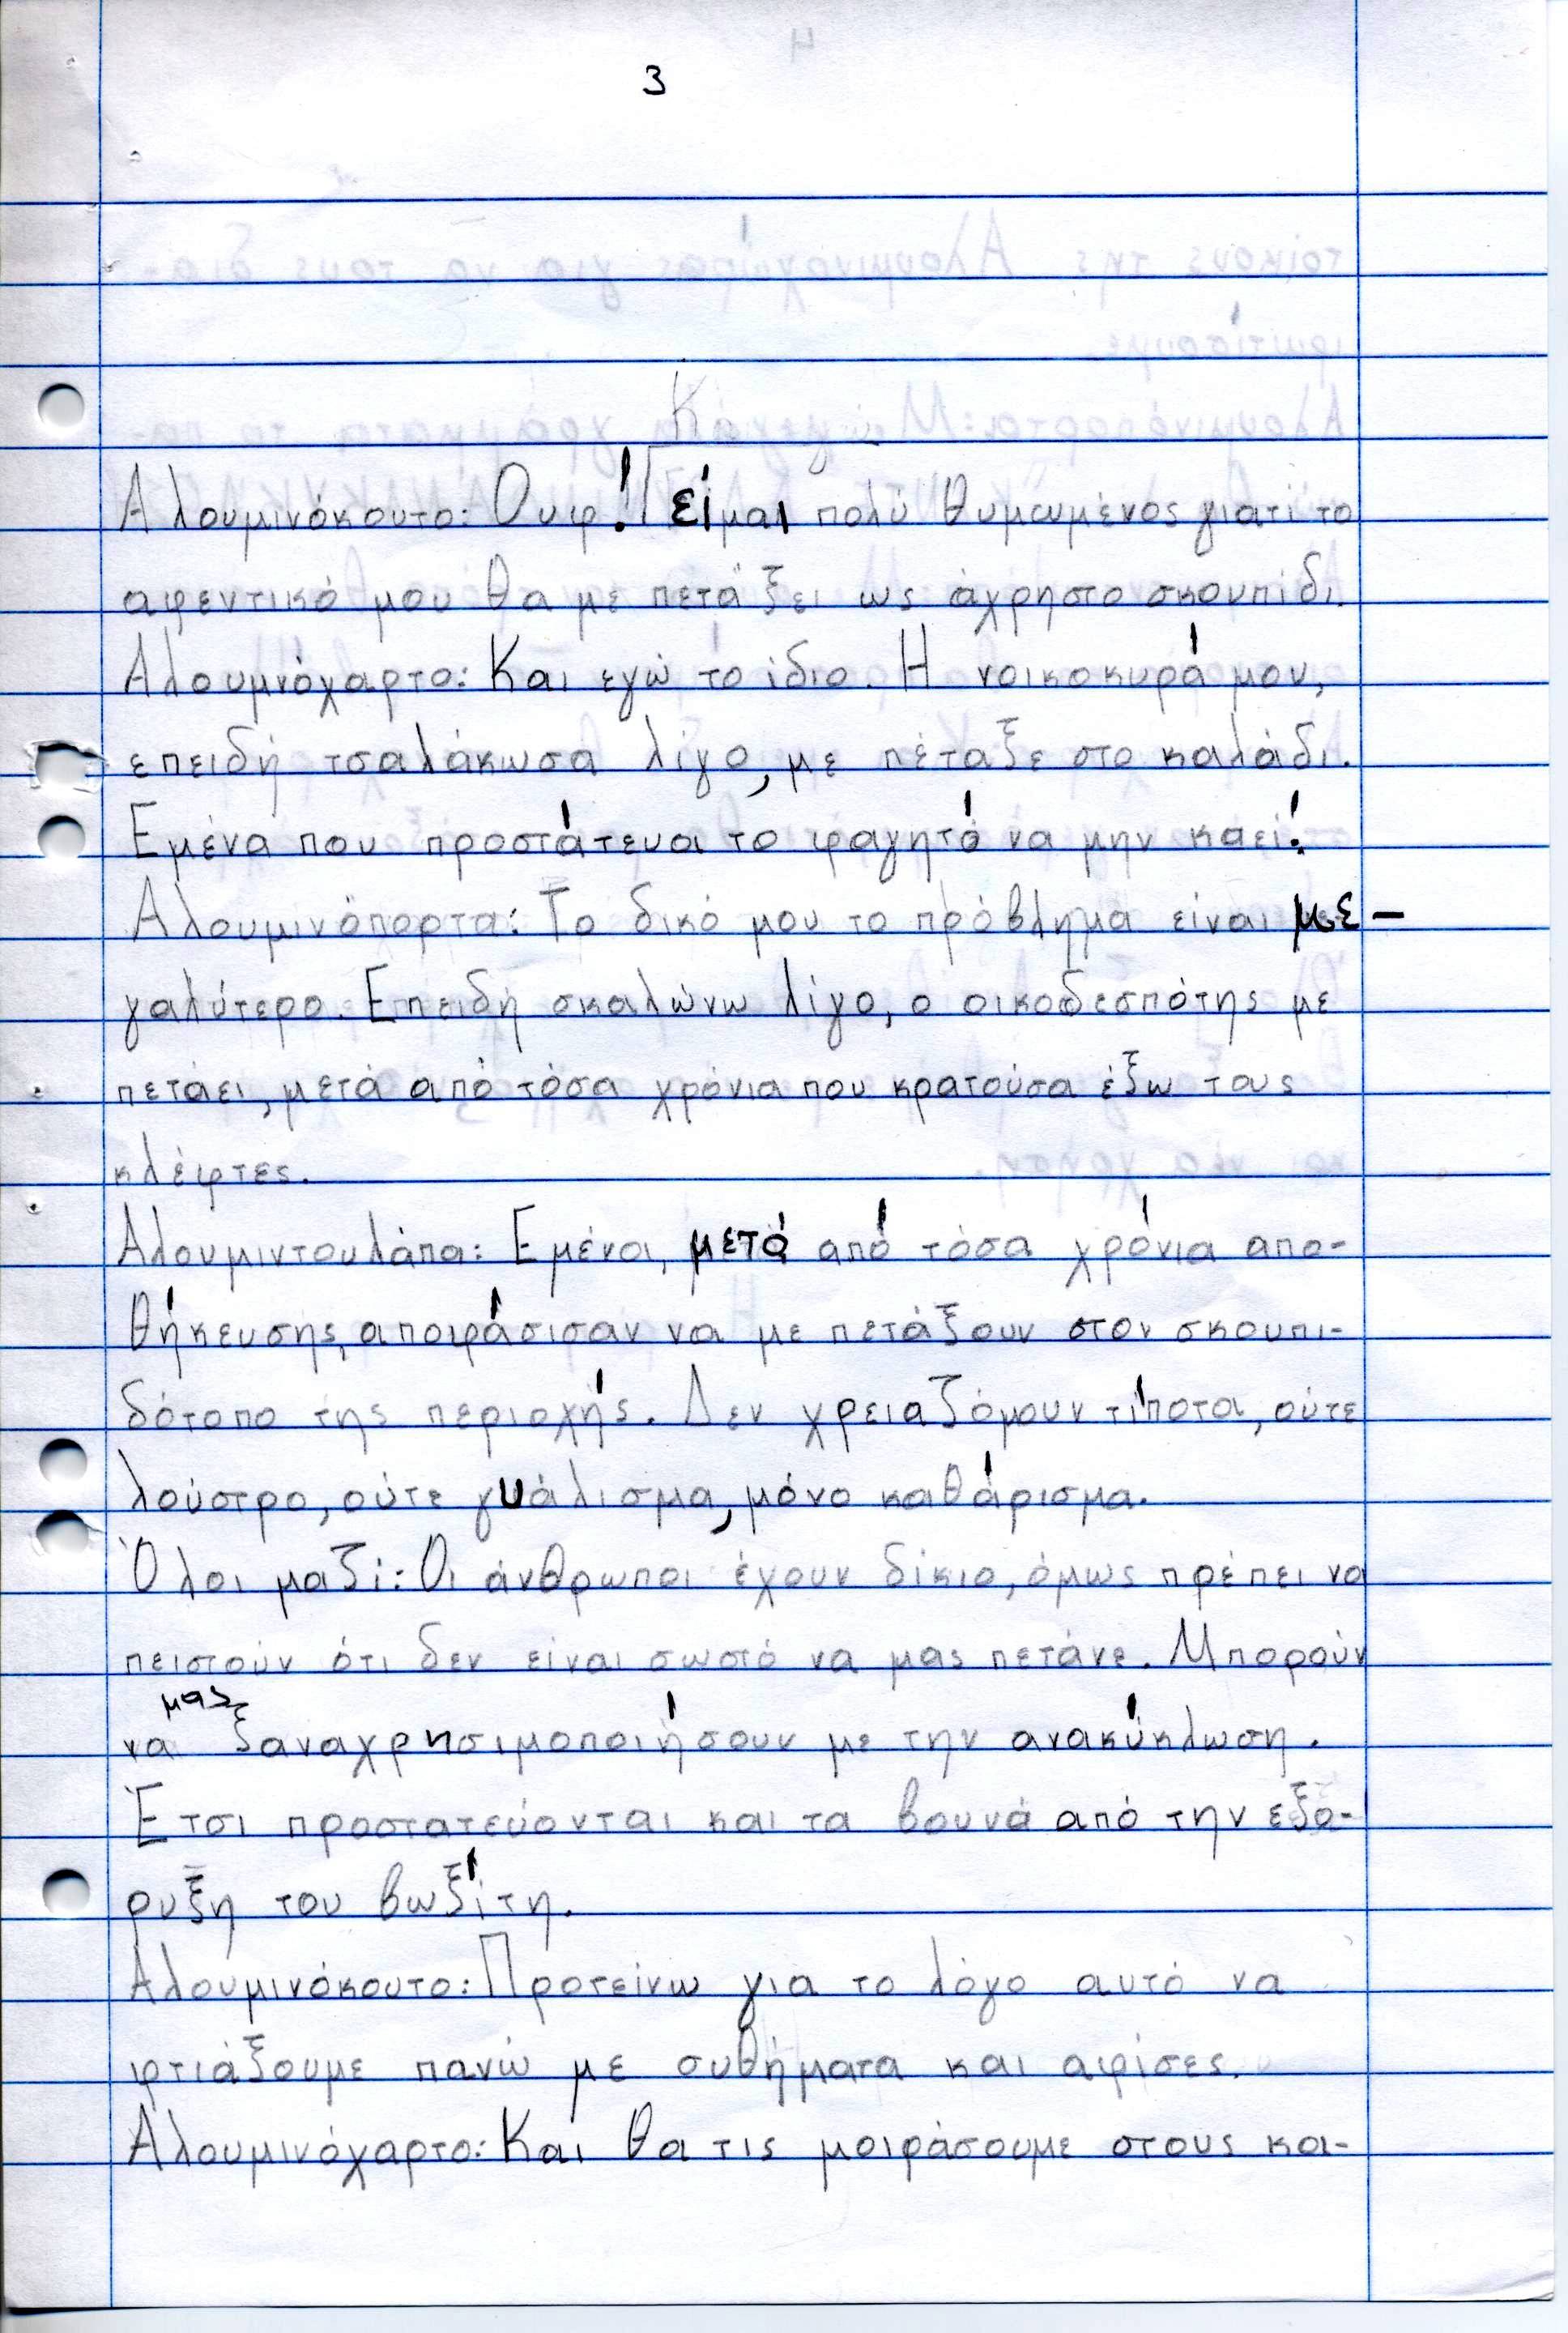 3
Αλουμινόκουτο: Ουφ! είμαι πολύ θυμωμένος γιατί το
αφεντικό μου θα με πετάξει ως άχρηστο σκουπίδι.
Αλουμνόχαρτο: Και εγώ το ίδιο. Η νοικοκυρά μου,
επειδή τσαλάκωσα λίγο, με πέταξε στο καλάδι.
Εμένα που προστάτευα το φαγητό να μην καεί!
Αλουμινόπορτα: Το δικό μου το πρόβλημα είναι με-
γαλύτερο. Επειδή σκαλώνω λίγο, ο οικοδεσπότης με
πετάει, μετά από τόσα χρόνια που κρατούσα έξω τους
κλέφτες.
Αλουμιντουλάπα: Εμένα, μετά από τόσα χρόνια απο-
θήκευσης, αποφάσισαν να με πετάξουν στον σκουπι-
δότοπο της περιοχής. Δεν χρειαζόμουν τίποτα, ούτε
λούστρο, ούτε γυάλισμα, μόνο καθάρισμα.
Όλοι μαζί: Οι άνθρωποι έχουν δίκιο, όμως πρέπει να
πειστούν ότι δεν είναι σωστό να μας πετάνε. Μπορούν
να μας ξαναχρησιμοποιήσουν με την ανακύκλωση.
Έτσι προστατεύονται και τα βουνά από την εξό-
ρυξη του βωξίτη.
Αλουμινόκουτο: Προτείνω για το λόγο αυτό να
φτιάξουμε πανώ με συθήματα και αφίσες.
Αλουμινόχαρτο: Και θα τις μοιράσουμε στους κα-